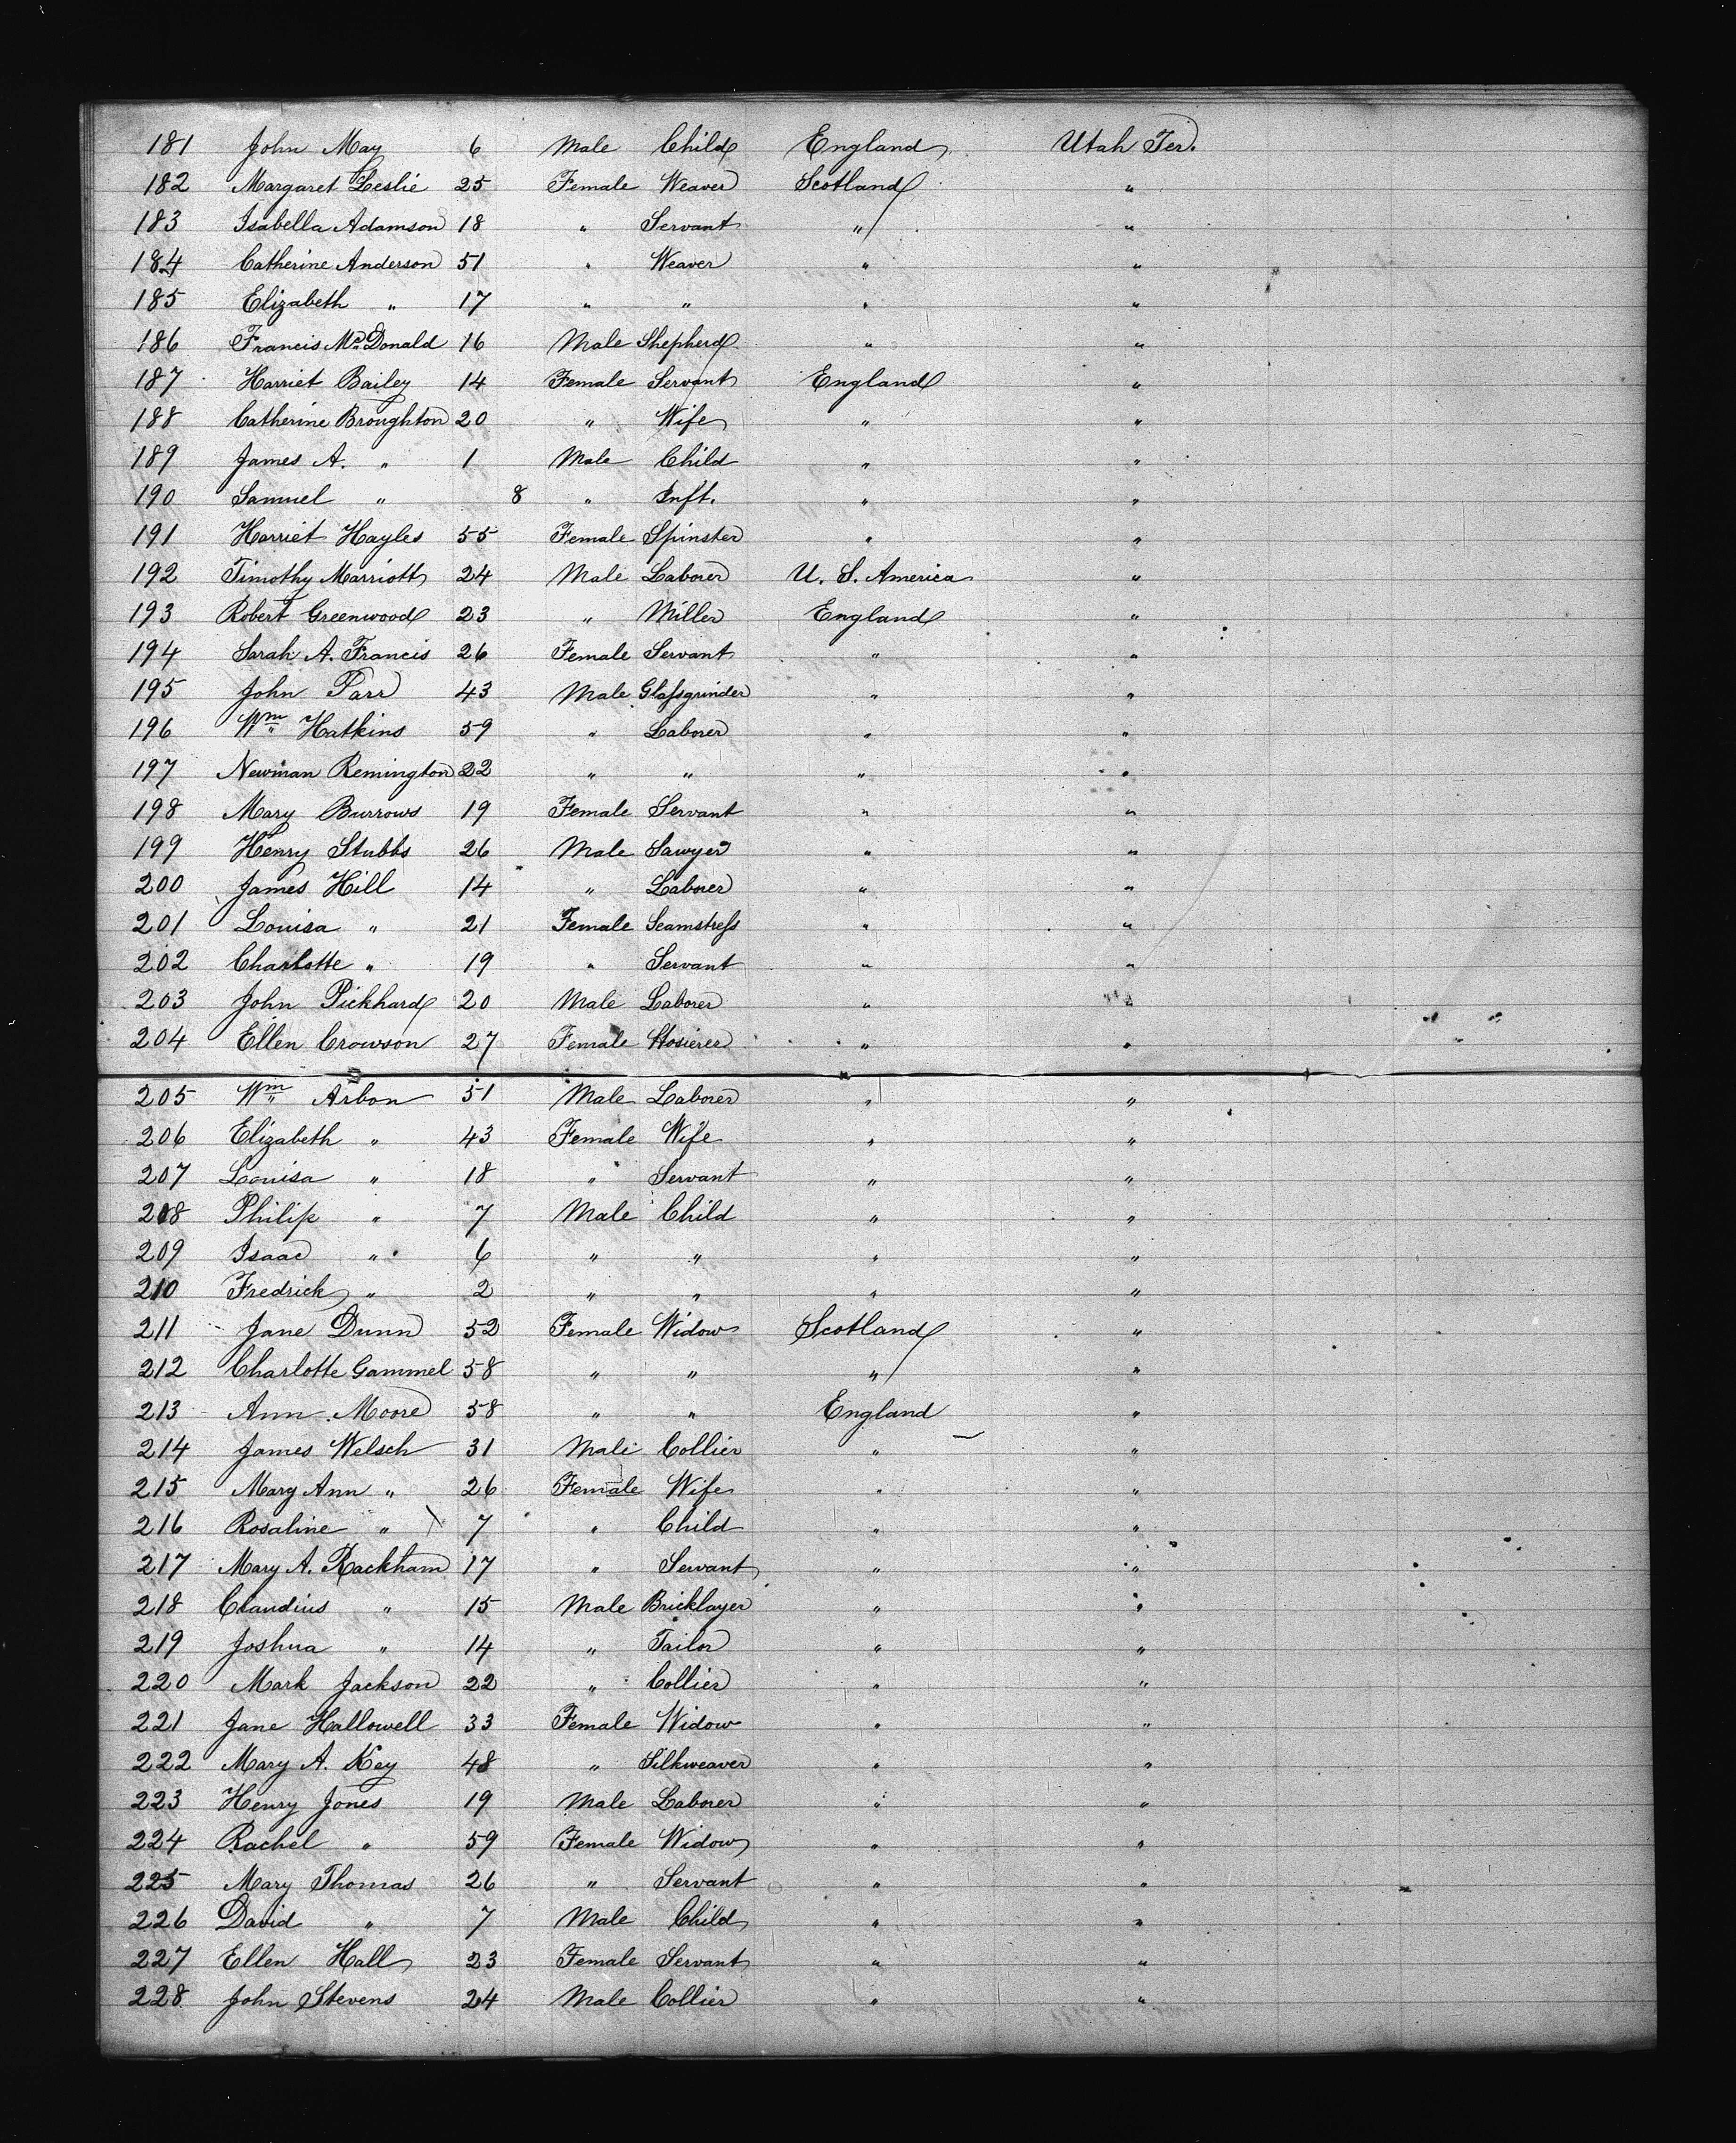 181 John May 6 Male Child England Utah Ter.
182 Margaret Leslie 25 Female Weaver Scotland "
183 Isabella Adamson 18 " Servant " "
184 Catherine Anderson 51 " Weaver " "
185 Elizabeth " 17 " " " "
186 Francis McDonald 16 Male Shepherd " "
187 Harriet Bailey 14 Female Servant England "
188 Catherine Broughton 20 " Wife " "
189 James A. " 1 Male Child " "
190 Samuel " 8 " Inft. " "
191 Harriet Hayles 55 Female Spinster " "
192 Timothy Marriott 24 Male Laborer U. S. America "
193 Robert Greenwood 23 " Miller England "
194 Sarah A. Francis 26 Female Servant " "
195 John Parr 43 Male Glassgrinder " "
196 Wm Hatkins 59 " Laborer " "
197 Newman Remington 22 " " " "
198 Mary Burrows 19 Female Servant " "
199 Henry Stubbs 26 Male Sawyer " "
200 James Hill 14 " Laborer " "
201 Louisa " 21 Female Seamstress " "
202 Charlotte " 19 " Servant " "
203 John Pickhard 20 Male Laborer " "
204 Ellen Crowson 27 Female Hosierer " "
205 Wm Arbon 51 Male Laborer " "
206 Elizabeth " 43 Female Wife " "
207 Louisa " 18 " Servant " "
208 Philip " 7 Male Child " "
209 Isaac " 6 " " " "
210 Fredrick " 2 " " " "
211 Jane Dunn 52 Female Widow Scotland "
212 Charlotte Gammel 58 " " " "
213 Ann Moore 58 " " England "
214 James Welsch 31 Male Collier " "
215 Mary Ann " 26 Female Wife " "
216 Rosaline " 7 " Child " "
217 Mary A. Rackham 17 " Servant " "
218 Claudius " 15 Male Bricklayer " "
219 Joshua " 14 " Tailor " "
220 Mark Jackson 22 " Collier " "
221 Jane Hallowell 33 Female Widow " "
222 Mary A. Key 48 " Silkweaver " "
223 Henry Jones 19 Male Laborer " "
224 Rachel " 59 Female Widow " "
225 Mary Thomas 26 " Servant " "
226 David " 7 Male Child " "
227 Ellen Hall 23 Female Servant " "
228 John Stevens 24 Male Collier " "